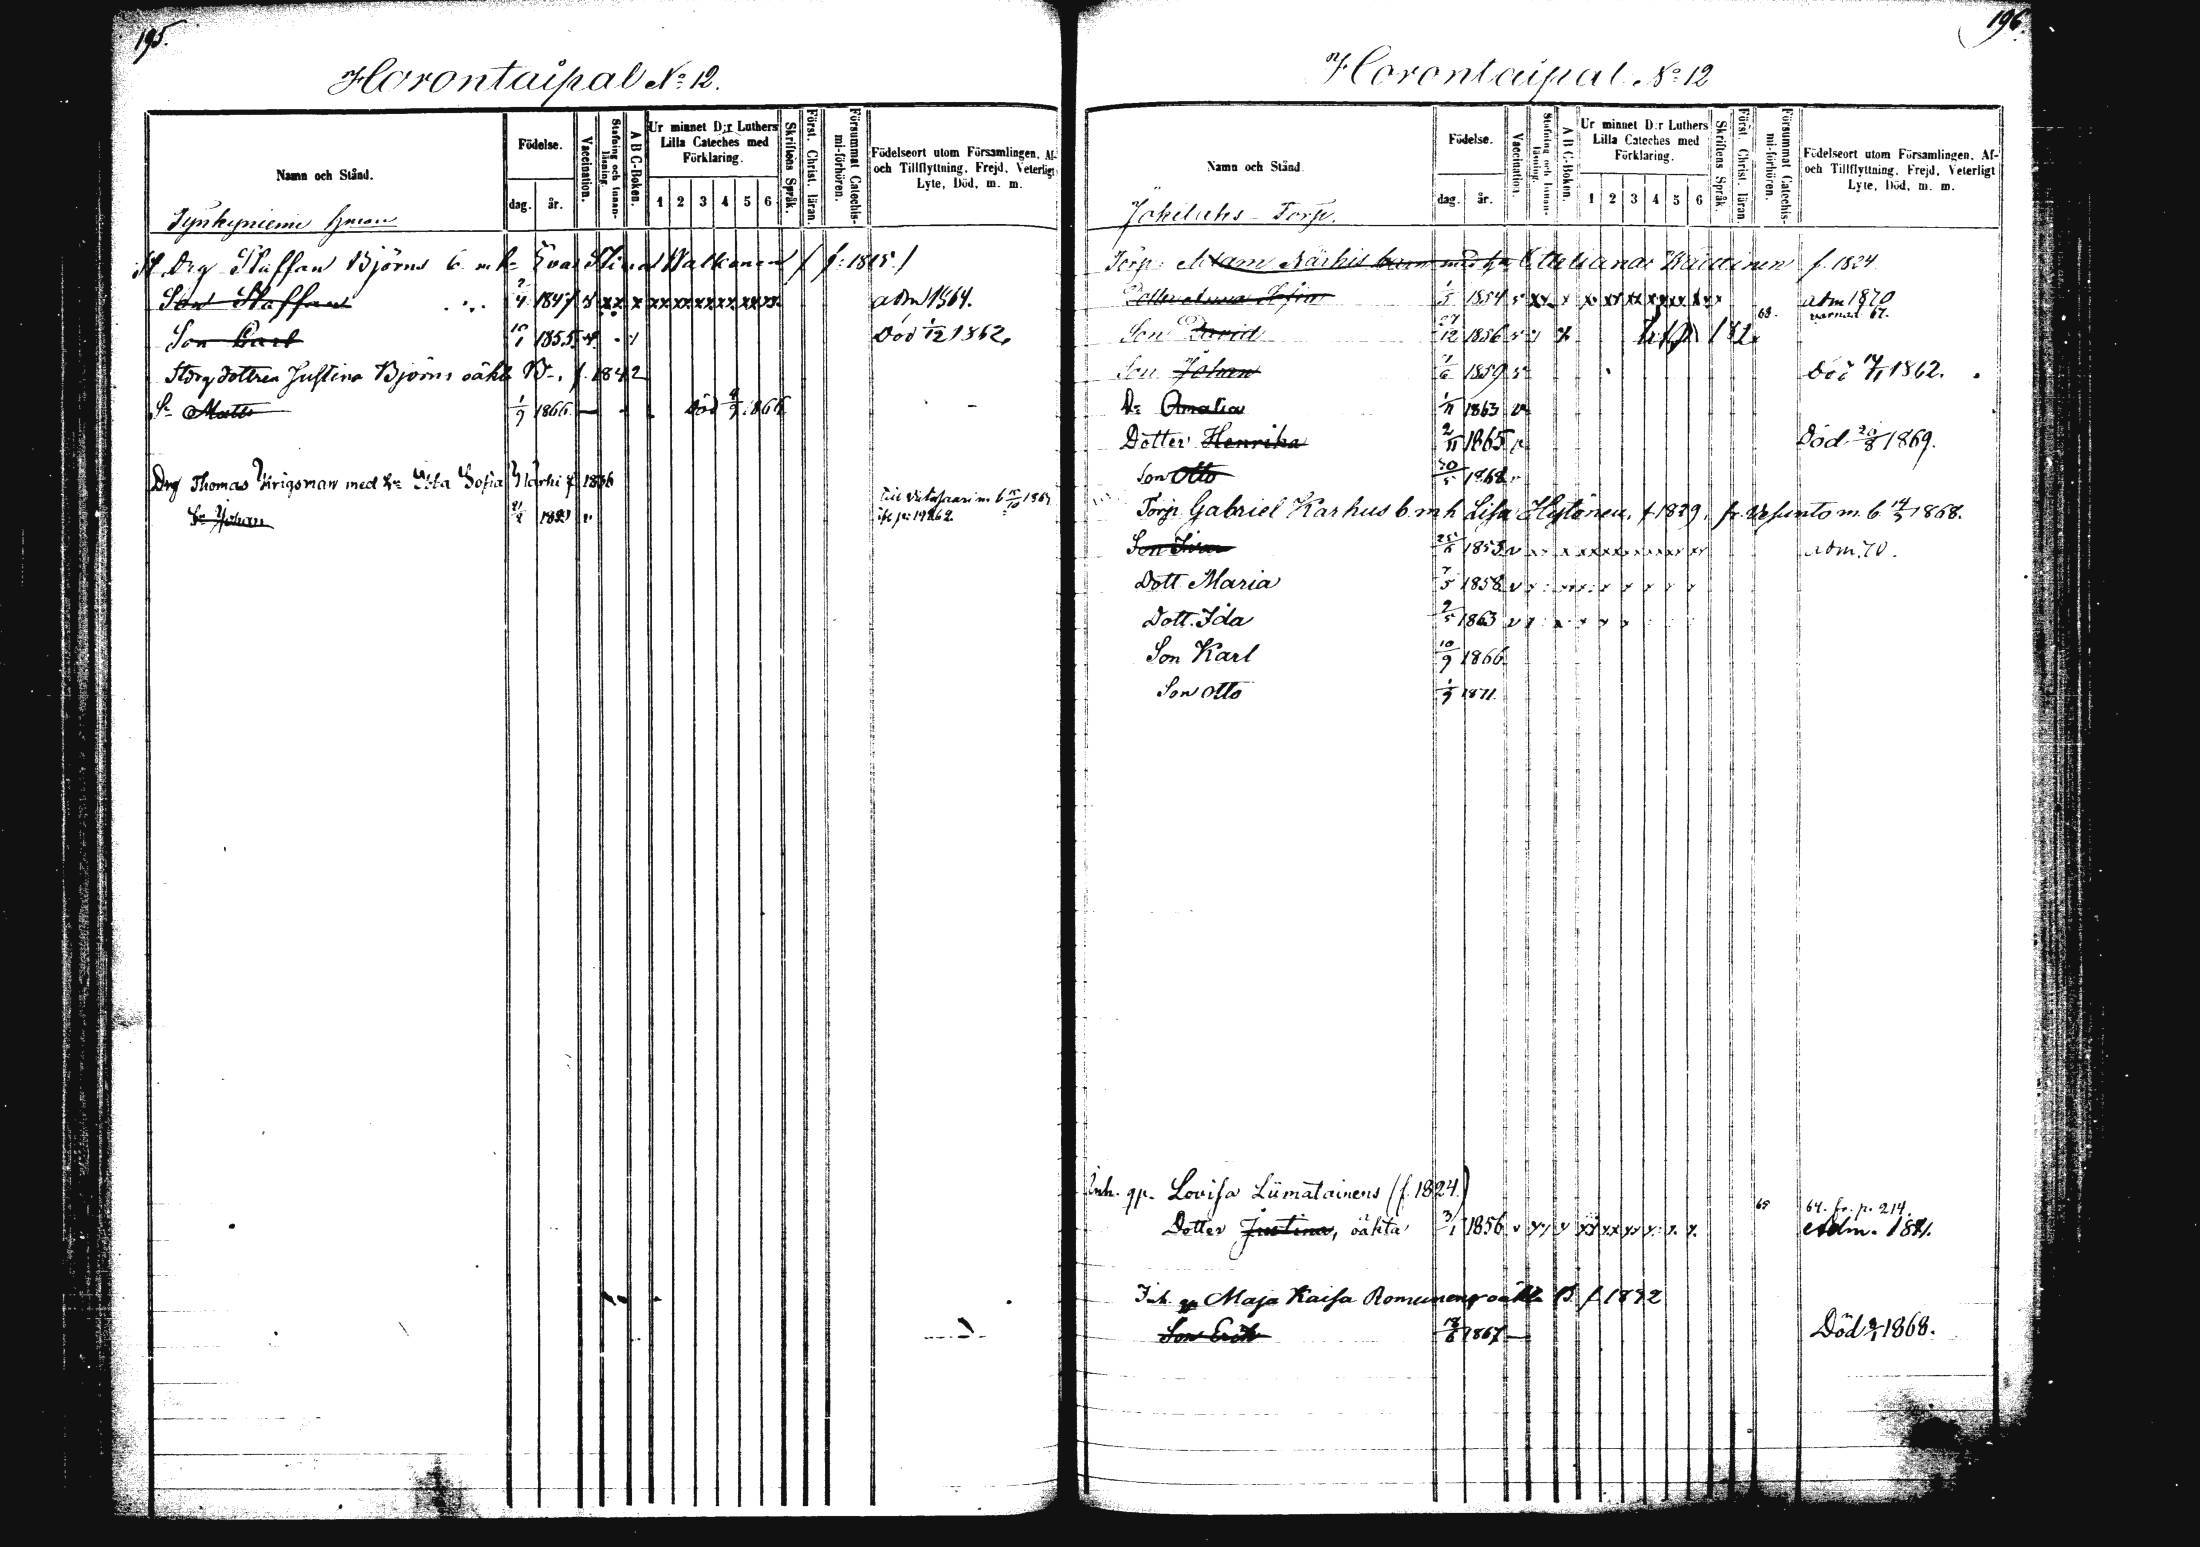 195.
Horontaipal No 12.
Namn och Stånd.
Födelse.
dag.
år.
Vaccination.
Stafning och Innan-läsning.
A B C-Boken.
Ur minnet D:r Luthers Lilla Cateches med Förklaring.
1 2 3 4 5 6
Skriftens Språk.
Först. Christ. läran.
Försummat Catechis-mi-förhören.
Födelseort utom Församlingen, Af- och Tillflyttning, Frejd, Veterligt Lyte, Död, m. m.
Drg Staffan Björns b. m h Eva Stina Walkonen / f: 1815 /
Son Staffan 2/4 1847 v xx x xx xx xx xx xx xx adm 1864.
Son Carl 10/1 1855 v Död 1/12 1862.
Stdrg dottren Justina Björns oäkta B-. f. 1842
Sn Matts 1/9 1866 — Död 4/9 1866
Drg Thomas Krigsman med h: Ulla Sofia Närhi f 1836
Sn Johan 21/2 v
196.
Horontaipal No 12
Namn och Stånd
Födelse.
dag.
år.
Vaccination.
Stafning och Innan-läsning.
A B C-Boken.
Ur minnet D:r Luthers Lilla Cateches med Förklaring.
1 2 3 4 5 6
Skriftens Språk.
Först. Christ. läran.
Försummat Catechis-mi-förhören.
Födelseort utom Församlingen, Af- och Tillflyttning, Frejd, Veterligt Lyte, Död, m. m.
Torp.
Torp: Adam Närhis barn med h: f. 1824
Dotter Anna Sofia 1/5 1854 adm 1870
68. varnad 67.
Son David 27/12 1856
Son Johan 1/6 1859 Död 14/11 1862.
D: Amalia 1/11 1863 v
Dotter Henrika 2/11 1865 v Död 20/8 1869.
Son Otto 30/5 1868 v
Torp Gabriel Karhus b. m h Lisa Hytönen, f. 1829. fr. Vesanto m. b 14/3 1868.
Son 25/6 1853 v adm. 70.
Dott Maria 7/5 1858 v
Dott. Ida 2/5 1863 v
Son Karl 10/9 1866
Son Otto 1/9 1871
Inh. qp. Lovisa Liimatainens (f. 1824.)
69 64. fr. p. 214.
Dotter Justina, oäkta 3/1 1856 v Adm. 1871.
Inh. qp Maja Kaisa Romunens oäkta B. f. 1832
Son Erik 18/6 1867 — Död 1868.